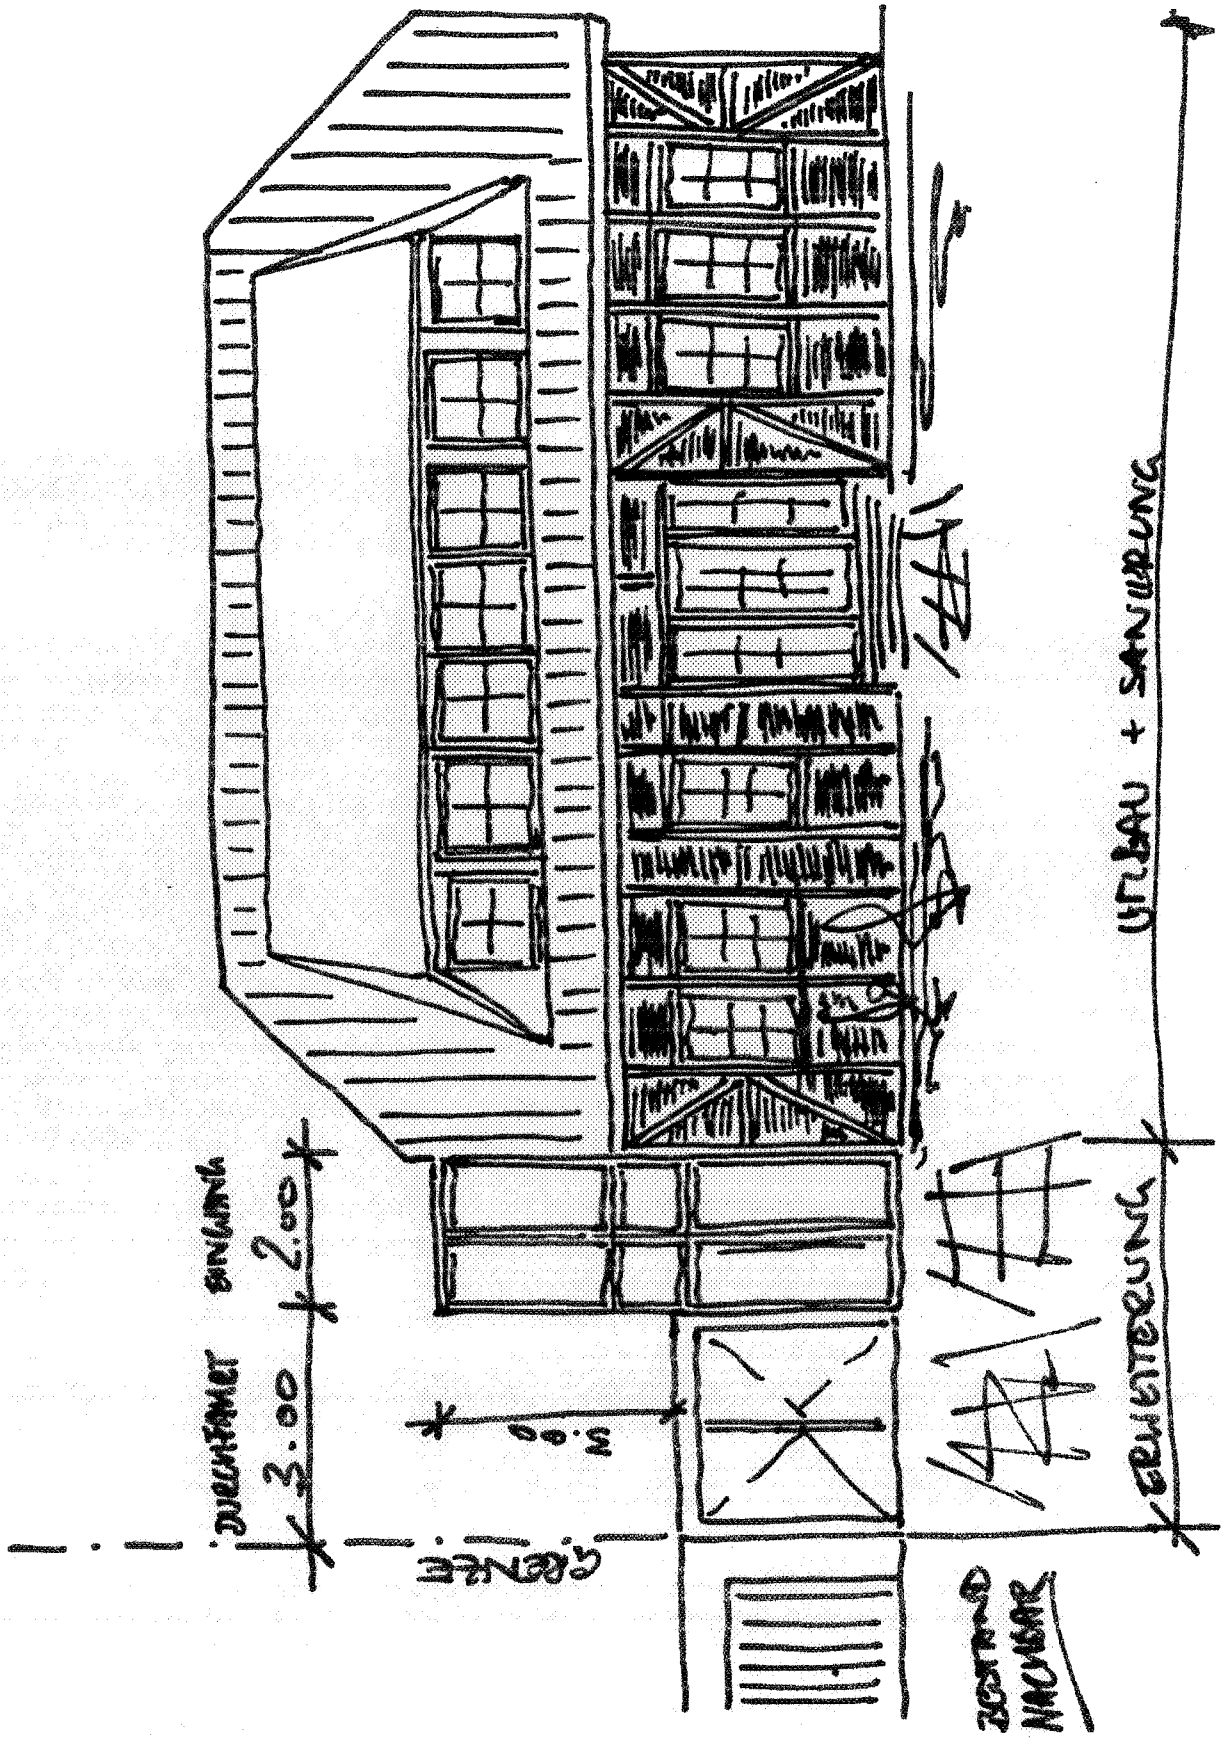 DURCHFAHRT
EINGANG
3.00
2.00
GRENZE
3.00
BESTAND
NACHBAR
ERWEITERUNG
UMBAU + SANIERUNG